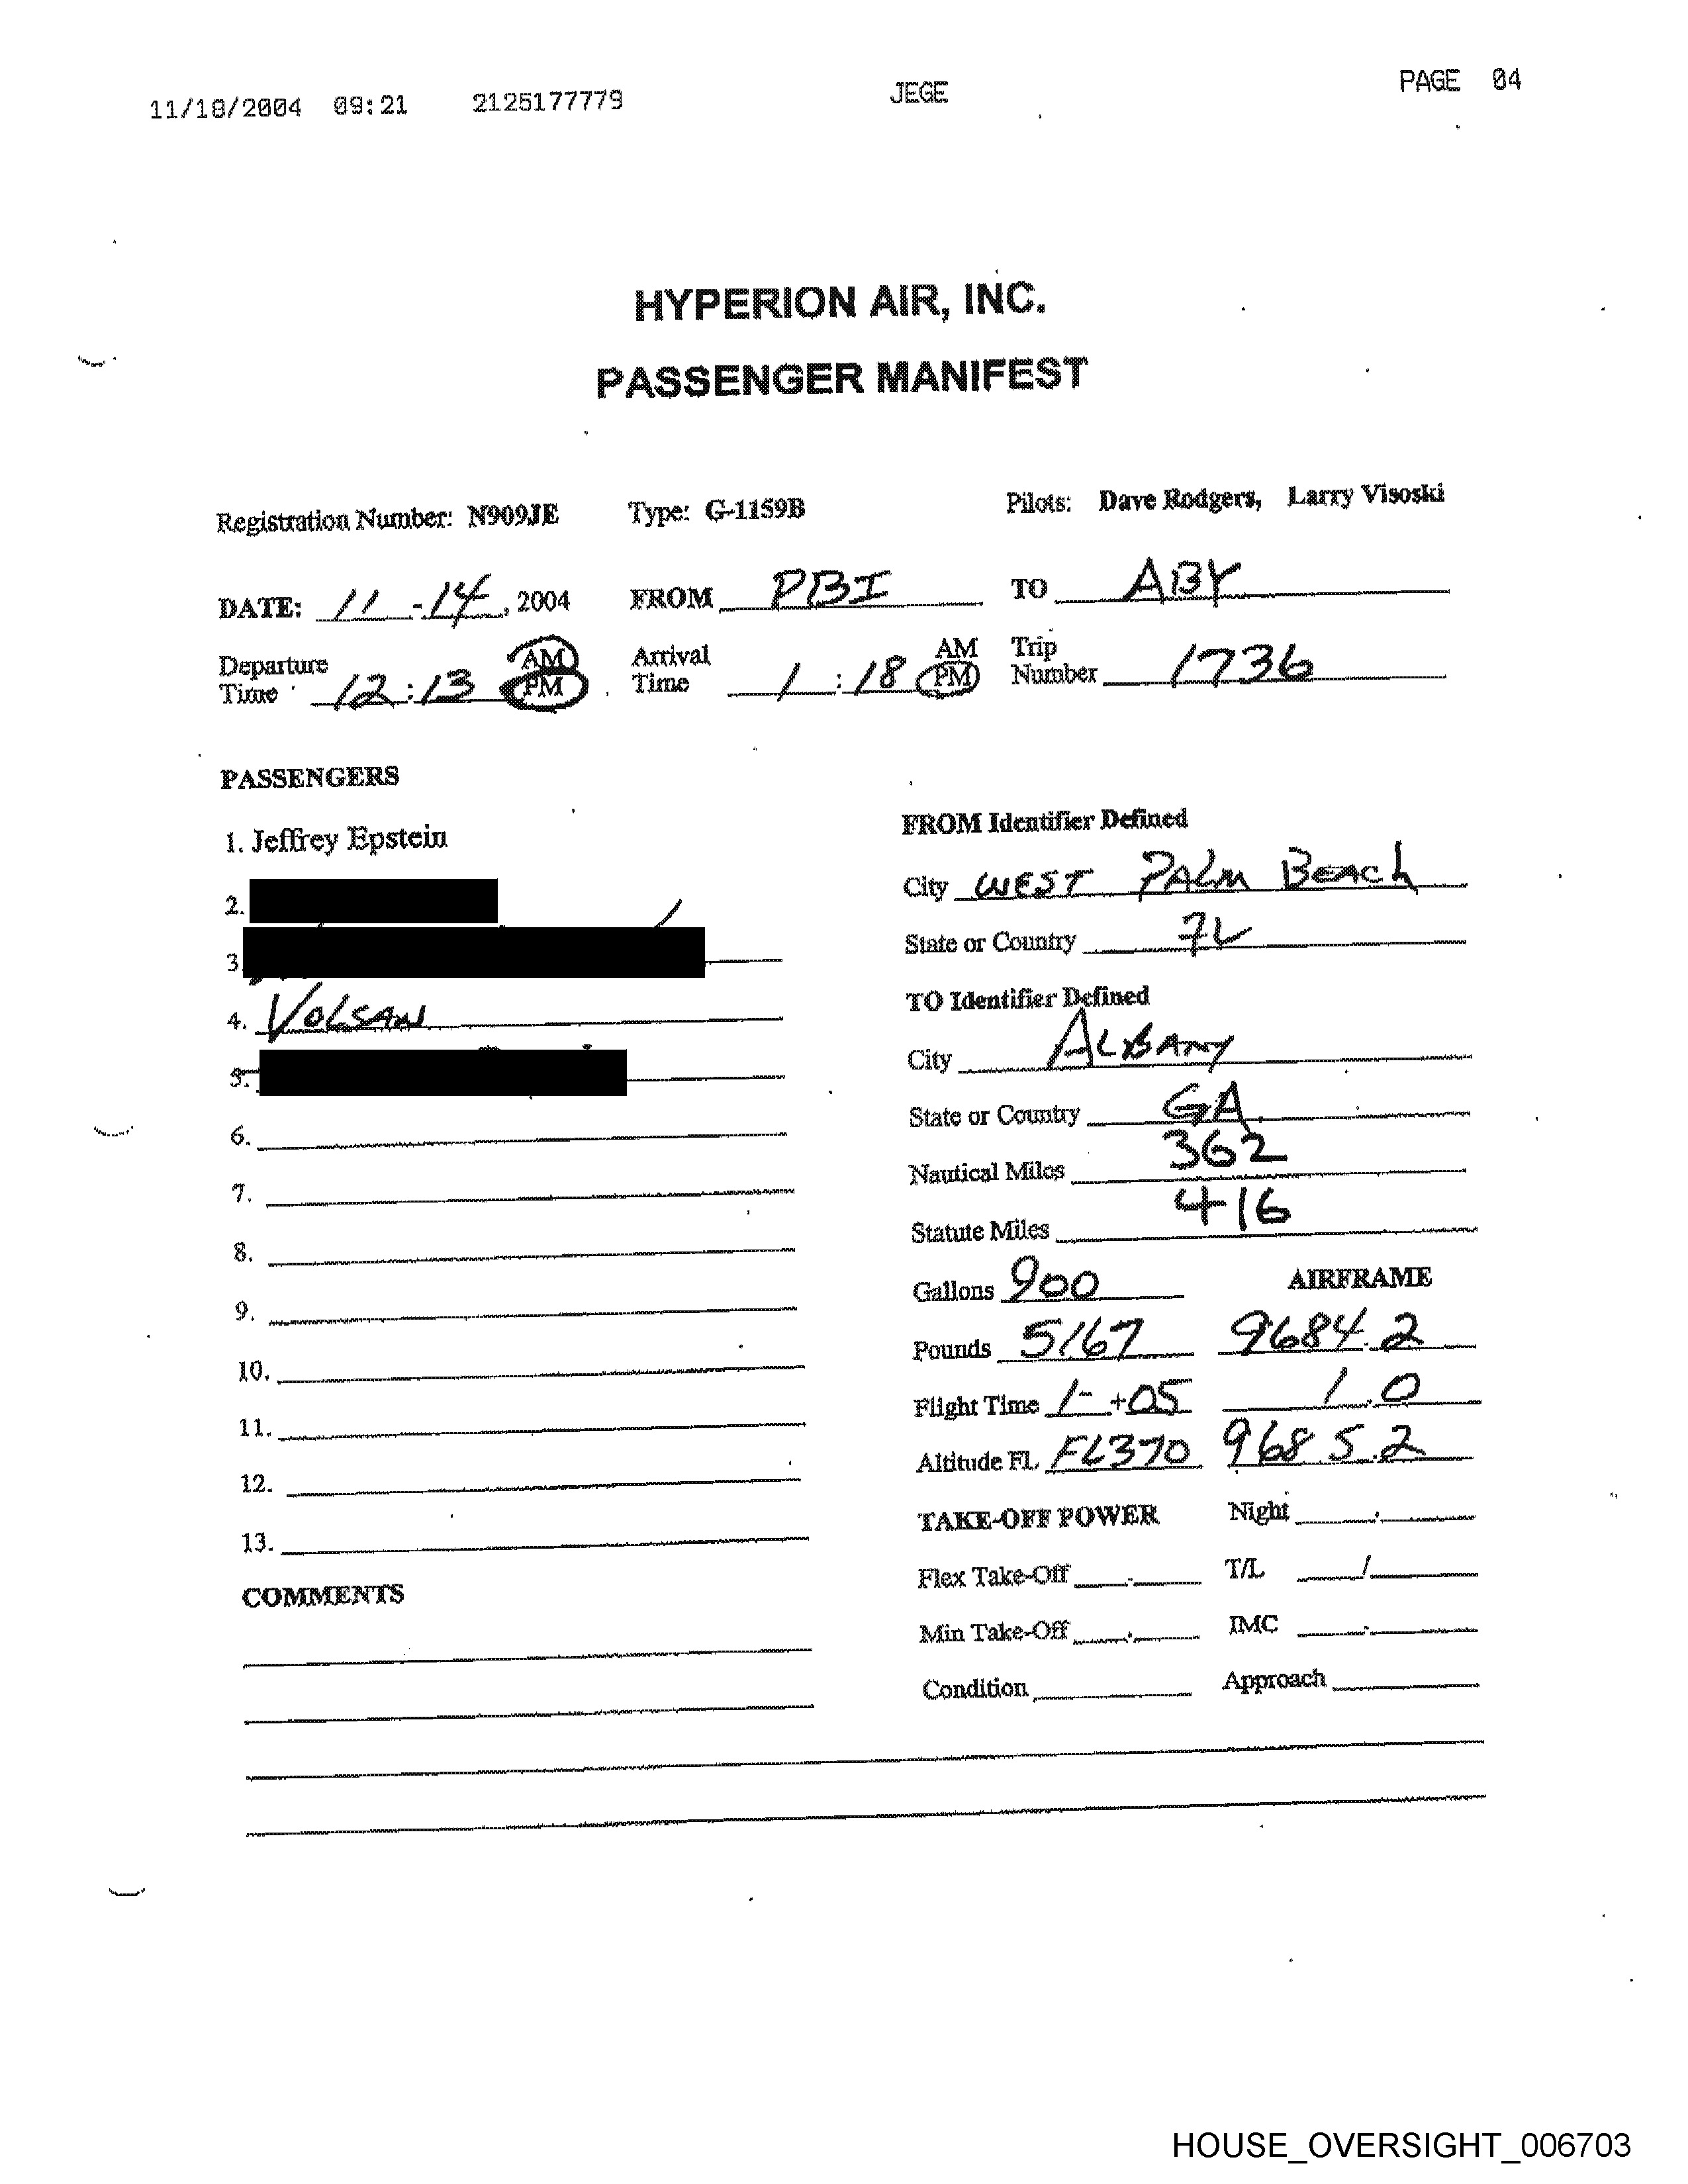 11/18/2004 09:21 2125177779 JEGE PAGE 04
HYPERION AIR, INC.
PASSENGER MANIFEST
Registration Number: N909JE Type: G-1159B Pilots: Dave Rodgers, Larry Visoski
DATE: 11-14, 2004 FROM PBI TO ABY
Departure Time 12:13 AM PM Arrival Time 1:18 AM PM Trip Number 1736
PASSENGERS
1. Jeffrey Epstein
2.
3
4. VOLSAN
5.
6.
7.
8.
9.
10.
11.
12.
13.
COMMENTS
FROM Identifier Defined
City WEST PALM BEACH
State or Country FL
TO Identifier Defined
City ALBANY
State or Country GA
Nautical Miles 362
Statute Miles 416
Gallons 900 AIRFRAME
Pounds 5167 9684.2
Flight Time 1 +05 1.0
Altitude FL FL370 9685.2
TAKE-OFF POWER Night
Flex Take-Off T/L /
Min Take-Off IMC
Condition Approach
HOUSE_OVERSIGHT_006703